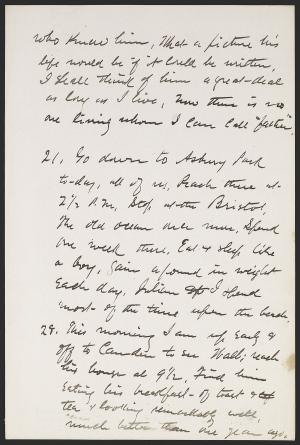 who knew him, What a picture his
life would be if it could be written,
I shall think of him a great deal
as long as I live, Now there is no
one living whom I can call "father".
21. Go down to Asbury Park
to-day, all of us, Reach there at
2½ P.M., Stop at the Bristol,
The old ocean once more, Spend
one week there, Eat & sleep like
a boy, Gain a pound in weight
each day, Julian & I spend
most of the time upon the beach.
28. This morning I am up early &
off to Camden to see Walt; reach
his house at 9½, Find him
eating his breakfast of toast &
tea & looking remarkably well,
much better than one year ago.